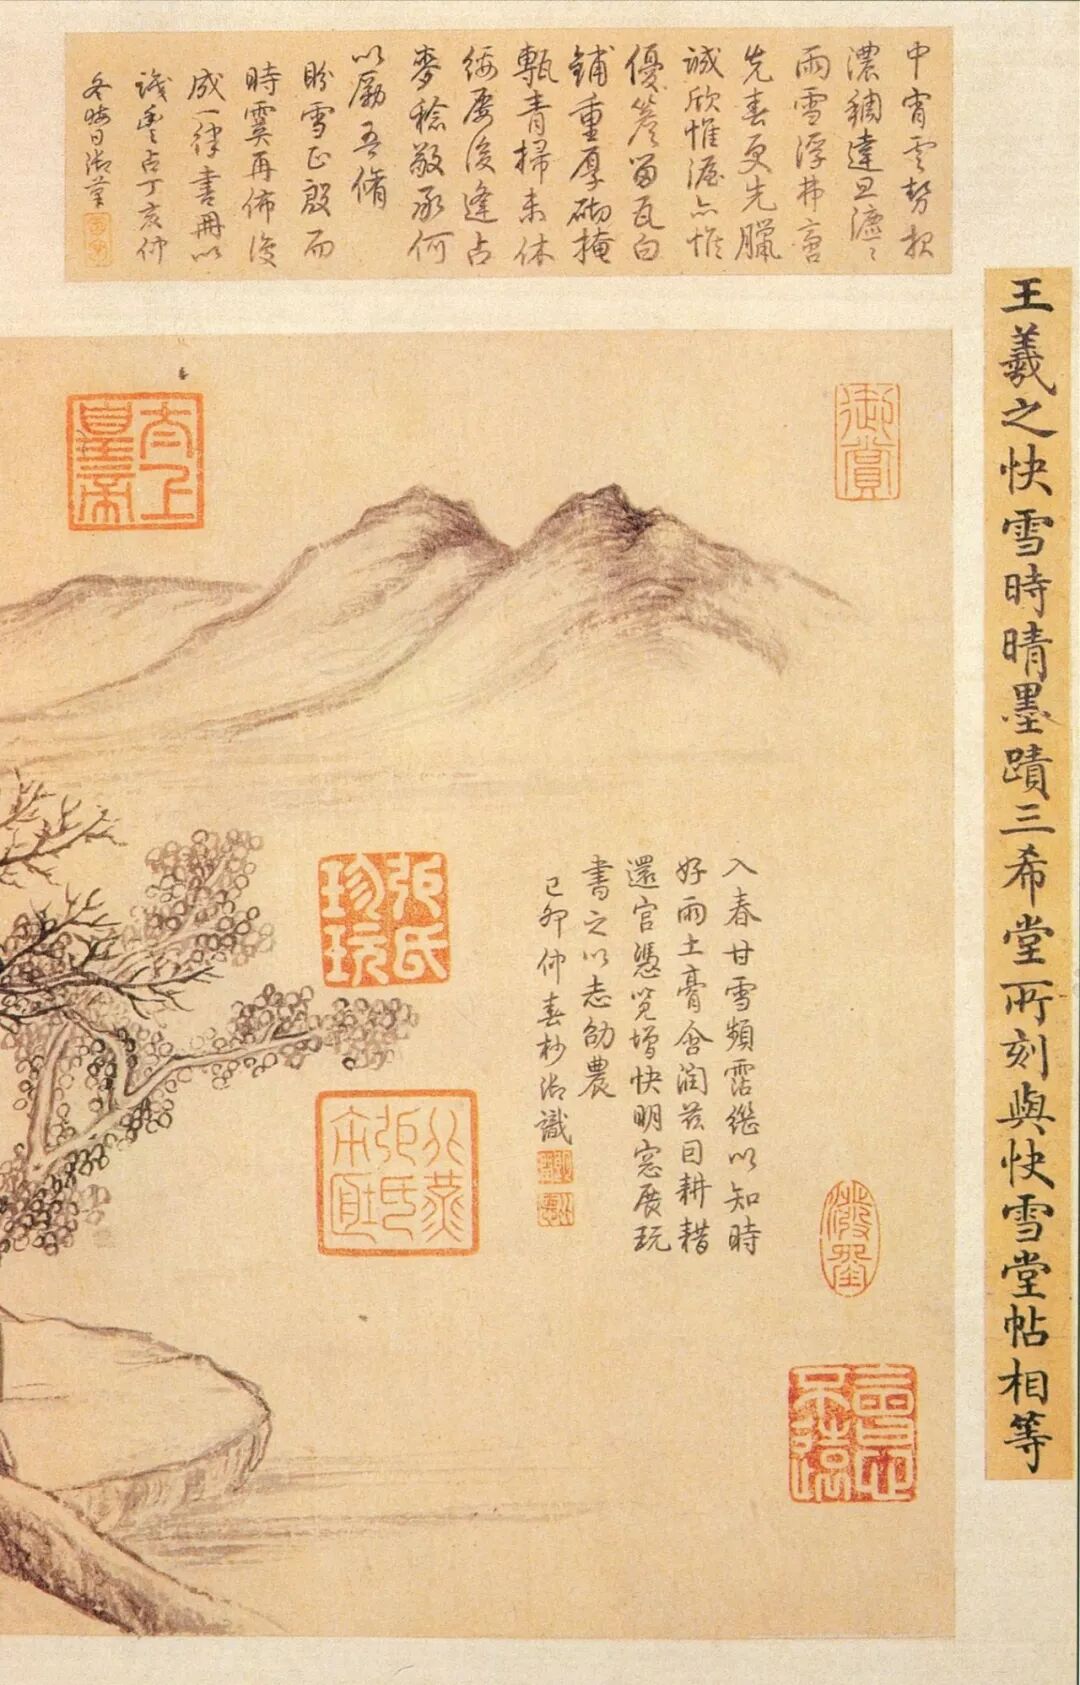 王羲之快雪時晴墨蹟三希堂所刻與快雪堂帖相等
中宵雲勢報
濃稠達旦瀌〻
雨雪浮弗啻
先春更先臘
誠欣惟渥亦惟
優簷留瓦白
鋪重厚砌掩
甎青掃未休
綏屢復逢占
麥稔敬承何
以勵吾脩
盼雪正殷而
時霙再佈復
成一律書冊以
識豐占丁亥仲
冬晦日御筆
御賞
太上皇帝
入春甘雪頻霑繼以知時
好雨土膏含潤茲日耕耤
還宮憑覽增快明窗展玩
書之以志劭農
己卯仲春杪御識
張氏珍玩